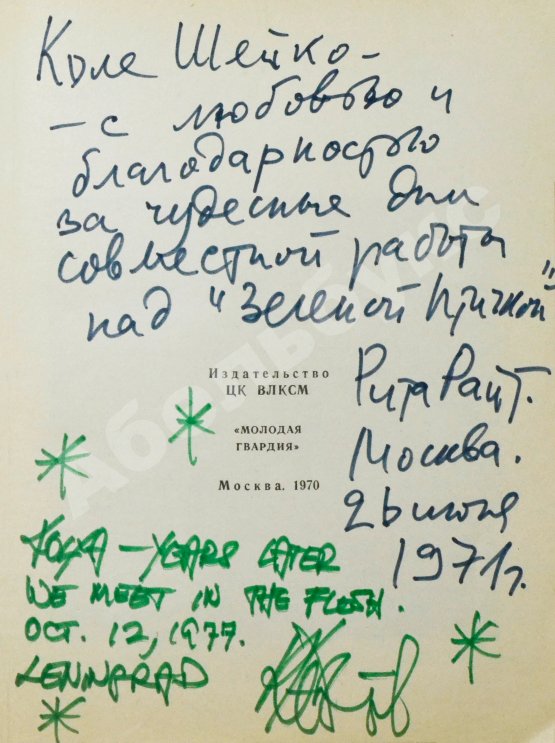 Коле Шейко –
– с любовью и
благодарностью
за чудесные дни
совместной работы
над "Зеленой птичкой"
Издательство
ЦК ВЛКСМ
«МОЛОДАЯ
ГВАРДИЯ»
Москва. 1970
Рита Райт.
Москва.
26 июня
1971 г.
– YEARS LATER
WE MEET IN THE FLESH.
OCT. 12, 1977.
LENINGRAD
Абельбукс